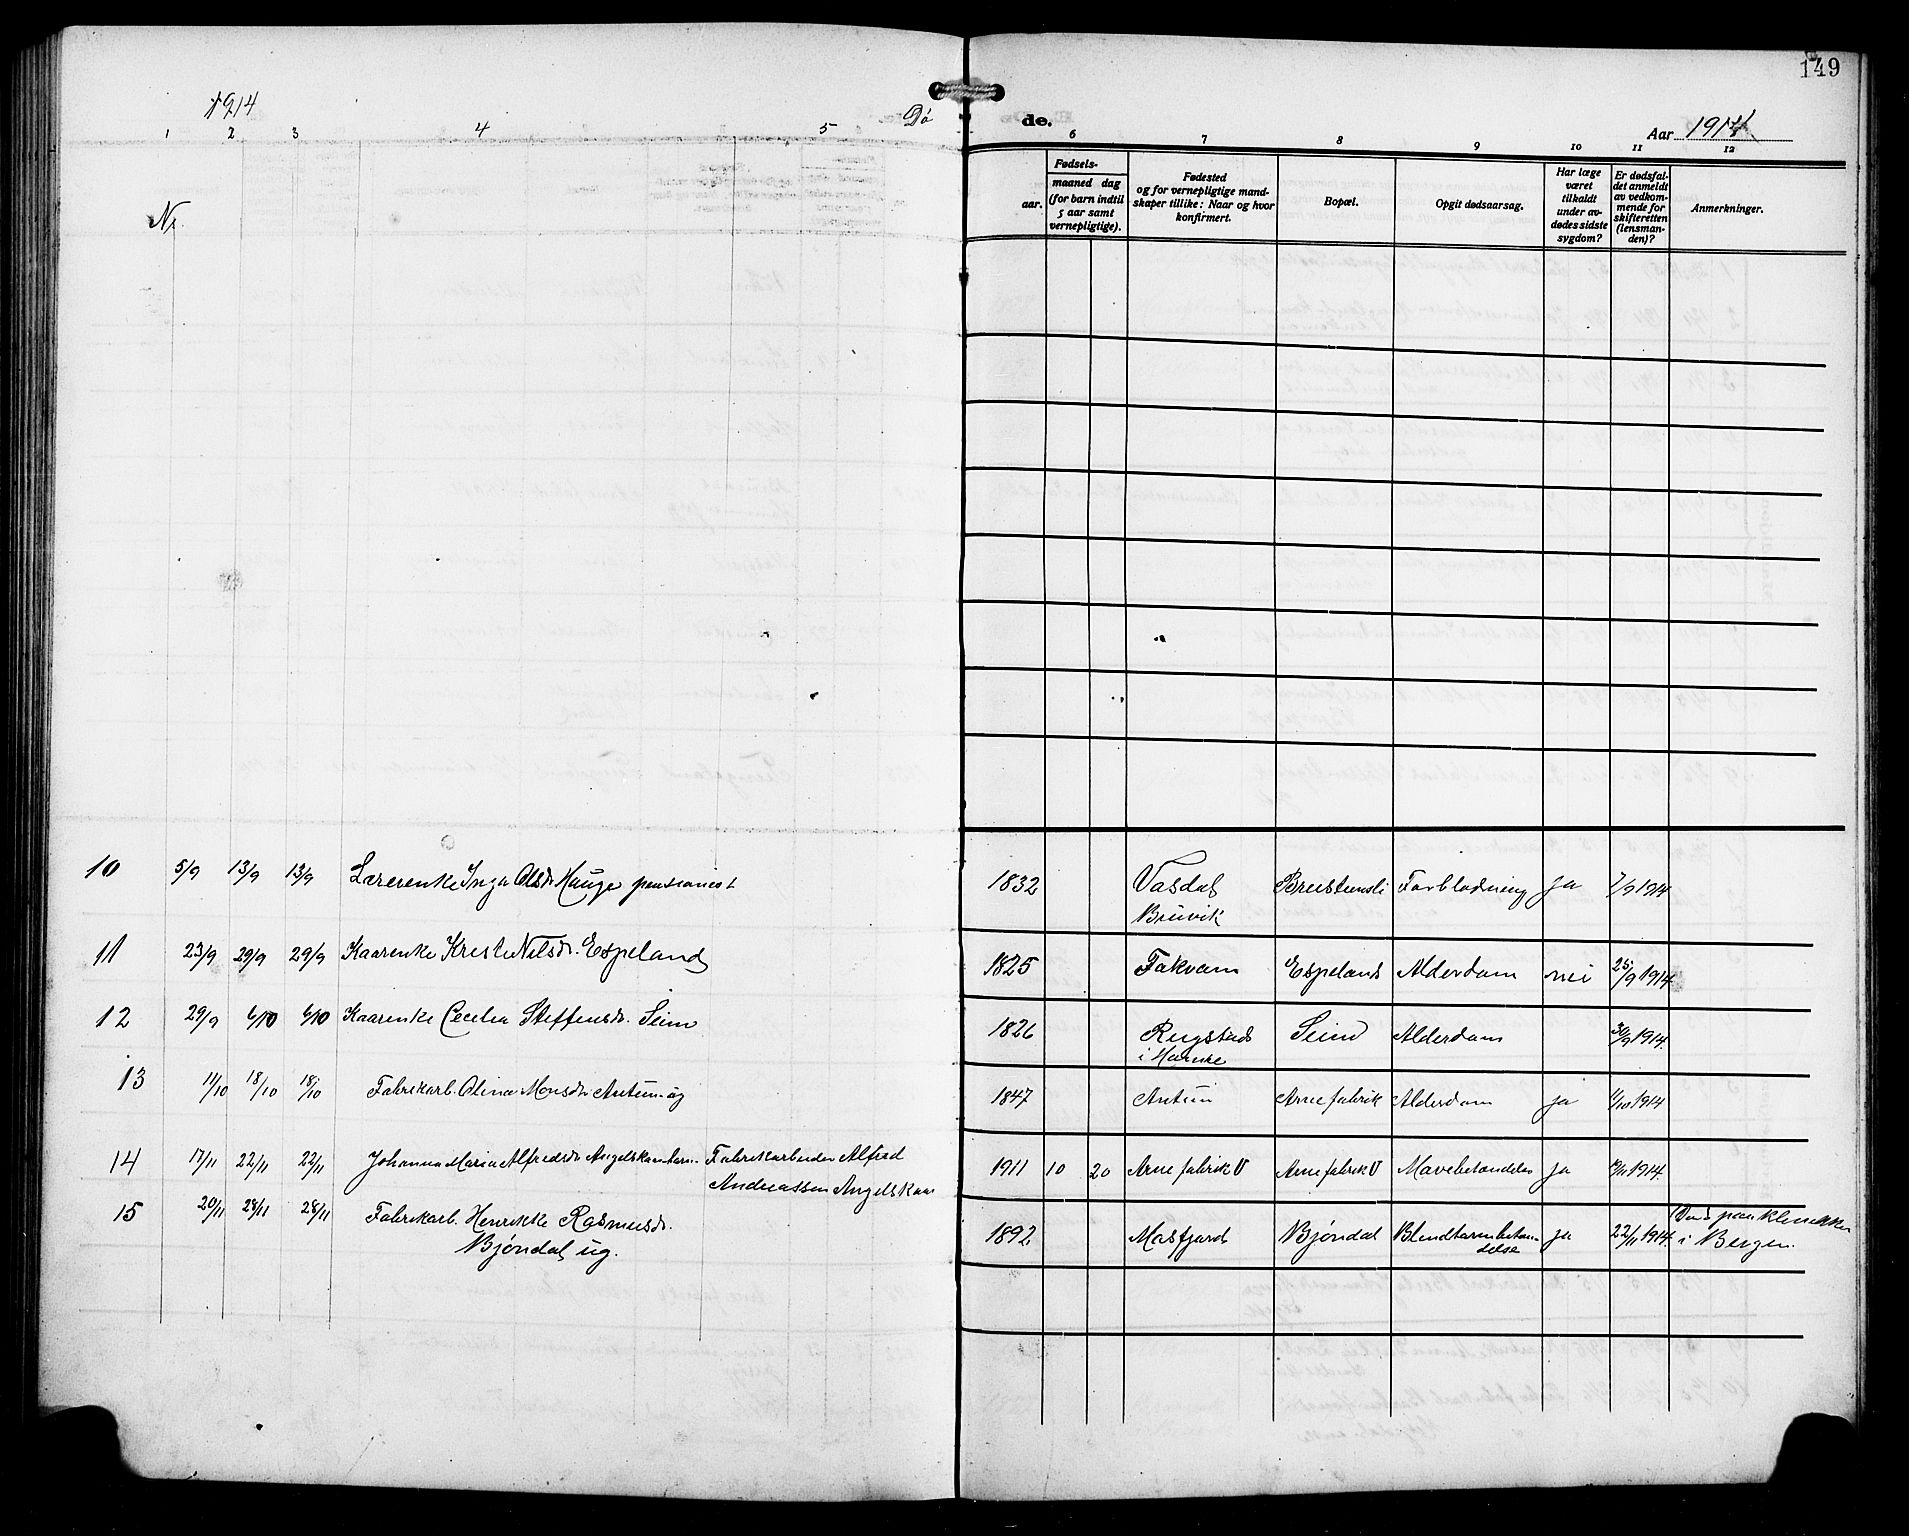 149
1914
1 2 3 4 5
Dø
de.
6 7 8 9 10 11 12
Aar 1914
Nr.
aar.
Fødsels-
maaned dag
(for barn indtil
5 aar samt
vernepligtige).
Fødested
og for vernepligtige mand-
skaper tillike: Naar og hvor
konfirmert.
Bopæl.
Opgit dødsaarsag.
Har læge
været
tilkaldt
under av-
dødes sidste
sygdom?
Er dødsfal-
det anmeldt
av vedkom-
mende for
skifteretten
(lensman-
den)?
Anmerkninger.
10 5/9 13/9 13/9 Lærerenke Inga Olsdr Hauge pensionist 1832 Vasdal Breistensli Forblødning ja 7/9 1914
Bruvik
11 23/9 29/9 29/9 Kaarenke Kriste Nilsdr. Espeland 1825 Takvam Espeland Alderdom nei 25/9 1914
12 29/9 6/10 6/10 Kaarenke Cecilia Steffensdr. Seim 1826 Rugstad Seim Alderdom 30/9 1914.
i Hamre
13 11/10 18/10 18/10 Fabrikarb. Olina Monsdr Antun ug 1847 Antun Arne fabrik Alderdom ja 1914
14 17/11 22/11 22/11 Johanna Maria Alfredsdr Angelskaar barn Fabrikarbeider Alfred 1911 10 20 Arne fabrik V Arne fabrik V Mavebetændelse ja 1914.
Andreassen Angelskaar
15 20/11 28/11 28/11 Fabrikarb. Henrikke Rasmusdr. 1892 Masfjord Bjøndal Blindtarmbetæn- ja 22/11 1914. Død paa klinikken
Bjøndal ug. delse i Bergen.